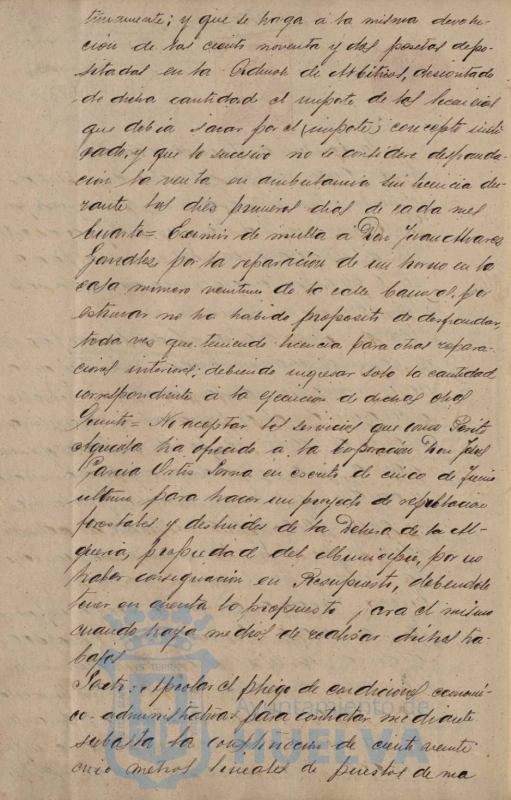 tinuamente; y que se haga a la misma devolu-
ción de las ciento noventa y dos pesetas depo-
sitadas en la Admon de Arbitrios, descontado
de dicha cantidad el importe de las licencias
que debia sacar por el (importe) concepto indi-
cado, y que lo sucesivo no se considere defrauda-
ción la venta en ambulancia sin licencia du-
rante los diez primeros dias de cada mes
Cuarto = Eximir de multa a Don Juan Alvarez
González por la reparación de un horno en la
casa numero veintiuno de la calle por
estimar no ha habido proposito de defraudar,
toda vez que teniendo licencia para otras repara-
ciones interiores; debiendo ingresar solo la cantidad
correspondiente a la ejecucion de dichas obras
Quinto = No aceptar los servicios que como Perito
Agricola ha ofrecido a la Corporación Don José
Garcia Ortiz en escrito de cinco de Junio
ultimo, para hacer un proyecto de repoblacion
forestales y deslindes de la Dehesa de la Al-
queria, propiedad del Municipio, por no
haber consignación en Presupuesto, debiendole
tener en cuenta lo propuesto para el mismo
cuando haya medios de realizar dichos tra-
bajos
Sexto: Aprobar el pliego de condiciones economi-
co-administrativas para contratar mediante
subasta la construcción de ciento veinte
cinco metros lineales de puestos de ma
Ayuntamiento de
HUELVA